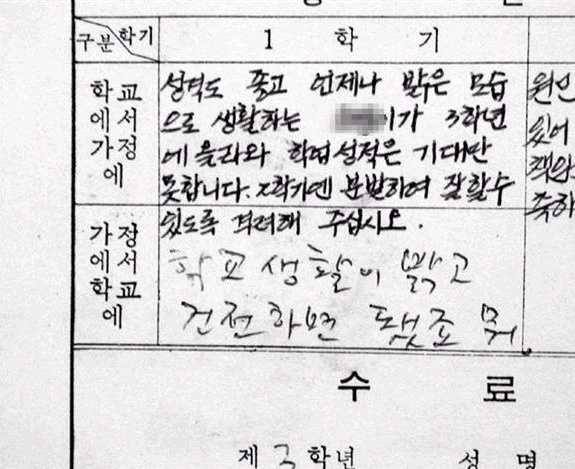 구분 학기
1 학 기
학교에서 가정에
성적도 좋고 언제나 밝은 모습
으로 생활하는 이가 3학년
에 올라와 학업성적은 기대만
못합니다. 2학기엔 분발하여 잘할수
있도록 격려해 주십시오.
가정에서 학교에
학교생활이 밝고
건전하면 됐죠 뭐
원인
있어
책임
축하
수 료
제 3 학년 성 명